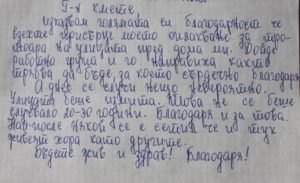 Г-н Кмете,
изказвам голямата си благодарност че
взехте присърце моето оплакване за тро-
тоара на улицата пред дома ми. Дойде
работна група и го направиха както
трябва да бъде, за което сърдечно благодаря
А днес се случи нещо невероятно.
Улицата беше измита. Това не се беше
случвало 20-30 години. Благодаря и за това.
Най-после някой се е сетил че и тук
живеят хора като другите.
Бъдете жив и здрав! Благодаря!